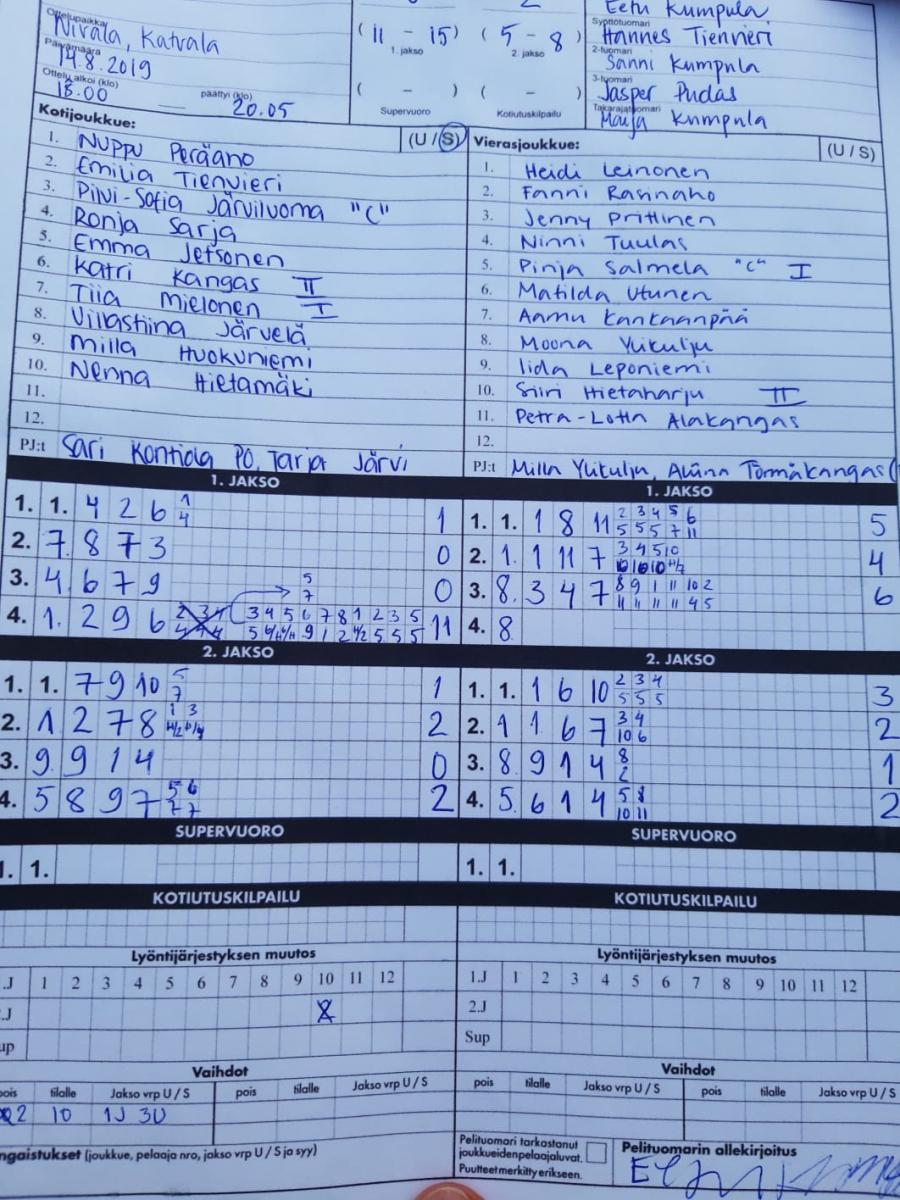 Eetu Kumpula
Ottelupaikka
Nivala, Katvala
( 11 - 15 ) ( 5 - 8 )
1. jakso 2. jakso
Syöttötuomari
Hannes Tienvieri
Päivämäärä
14.8.2019
2-tuomari
Sanni Kumpula
Ottelu alkoi (klo) päättyi (klo)
18.00 — 20.05
( - ) ( - )
Supervuoro Kotiutuskilpailu
3-tuomari
Jasper Pudas
Takarajatuomari
Maija Kumpula
Kotijoukkue: (U / S)
1. Nuppu Peräaho
2. Emilia Tienvieri
3. Pilvi-Sofia Järviluoma "C"
4. Ronja Sarja
5. Emma Jetsonen
6. Katri Kangas II
7. Tiia Mielonen I
8. Villastiina Järvelä
9. Milla Huokuniemi
10. Nenna Hietamäki
11.
12.
PJ:t Sari Kontiola PO, Tarja Järvi
Vierasjoukkue: (U / S)
1. Heidi Leinonen
2. Fanni Rasinaho
3. Jenny Prittinen
4. Ninni Tuulas
5. Pinja Salmela "C" I
6. Matilda Utunen
7. Aamu Kankaanpää
8. Moona Ylikulju
9. Iida Leponiemi
10. Siiri Hietaharju II
11. Petra-Lotta Alakangas
12.
PJ:t Milla Ylikulju, Aliina Törmäkangas (
1. JAKSO
1. 1. 4 2 6 1 1
4
2. 7. 8 7 3 0
3. 4. 6 7 9 5 0
7
4. 1. 2 9 6 3 4 5 6 7 8 1 2 3 5 11
1. JAKSO
1. 1. 1 8 11 2 3 4 5 6 5
5 5 5 7 11
2. 1. 1 11 7 3 4 5 10 4
10 10 10 H/7
3. 8. 3 4 7 8 9 1 11 10 2 6
11 11 11 11 4 5
4. 8.
2. JAKSO
1. 1. 7 9 10 5 1
7
2. 1 2 7 8 1 3 2
3. 9. 9 1 4 0
4. 5 8 9 7 5 6 2
7 7
2. JAKSO
1. 1. 1 6 10 2 3 4 3
5 5 5
2. 1 1 6 7 3 4 2
10 6
3. 8 9 1 4 8 1
2
4. 5. 6 1 4 5 8 2
10 11
SUPERVUORO
1. 1.
SUPERVUORO
1. 1.
KOTIUTUSKILPAILU
KOTIUTUSKILPAILU
Lyöntijärjestyksen muutos
.J 1 2 3 4 5 6 7 8 9 10 11 12
.J
up
Lyöntijärjestyksen muutos
1.J 1 2 3 4 5 6 7 8 9 10 11 12
2.J
Sup
Vaihdot
pois tilalle Jakso vrp U / S pois tilalle Jakso vrp U / S
2 10 1J 3U
Vaihdot
pois tilalle Jakso vrp U / S pois tilalle Jakso vrp U / S
ngaistukset (joukkue, pelaaja nro, jakso vrp U / S ja syy)
Pelituomari tarkastanut
joukkueidenpelaajaluvat.
Puutteet merkitty erikseen.
Pelituomarin allekirjoitus